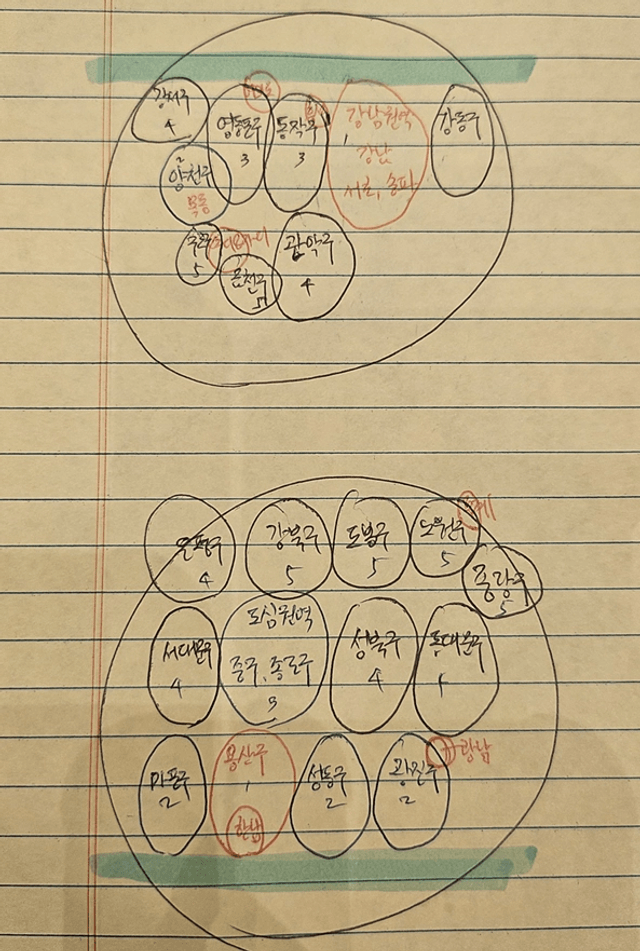 강서구
4
영등포구
3
동작구
3
강남권역
1
강남
서초, 송파
강동구
양천구
목동
5
관악구
4
5
은평구
4
강북구
5
도봉구
5
노원구
5
중랑구
5
서대문구
4
도심권역
중구, 종로구
3
성북구
4
동대문구
마포구
2
용산구
1
한남
성동구
2
광진구
2
광남